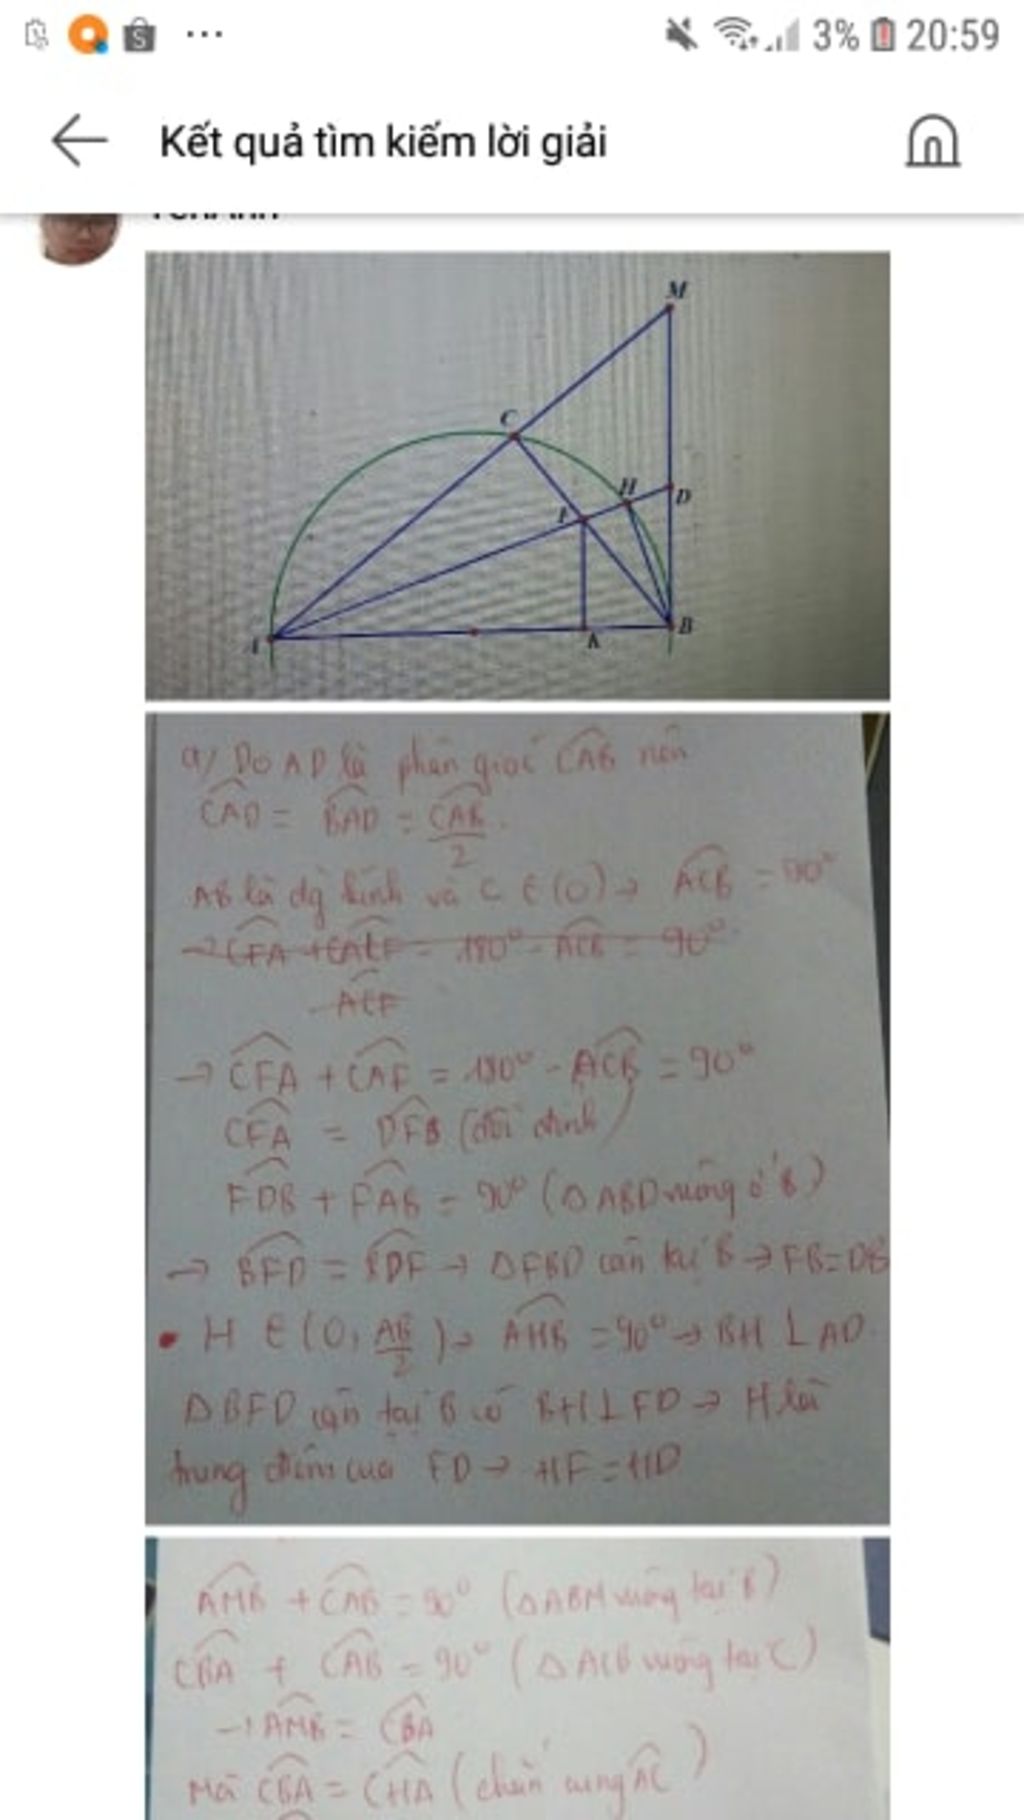 3% 20:59
Kết quả tìm kiếm lời giải
M
C
H
D
F
A
K
B
a/ Do AD là phân giác CAB nên
CAD = BAD = CAB
2
AB là đg kính và C ∈ (O) → ACB = 90°
→ CFA + CAF = 180° - ACB = 90°
ACF
→ CFA + CAF = 180° - ACB = 90°
CFA = DFB (đối đỉnh)
FDB + FAB = 90° (△ABD vuông ở B)
→ BFD = BDF → △FBD cân tại B → FB = DB
• H ∈ (O, AB/2) → AHB = 90° → BH ⊥ AD
△BFD cân tại B có BH ⊥ FD → H là
trung điểm của FD → HF = HD
AMB + CAB = 90° (△ABM vuông tại B)
CBA + CAB = 90° (△ACB vuông tại C)
→ AMB = CBA
Mà CBA = CHA (chắn cung AC)